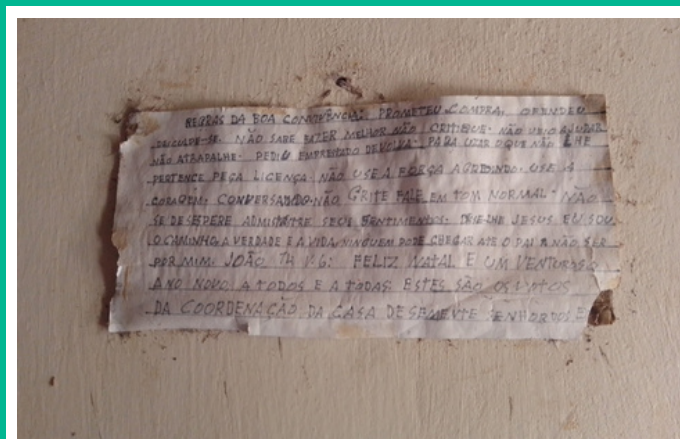 REGRAS DA BOA CONVIVÊNCIA: PROMETEU CUMPRA, OFENDEU
DESCULPE-SE. NÃO SABE FAZER MELHOR NÃO CRITIQUE. NÃO VEIO AJUDAR
NÃO ATRAPALHE. PEDIU EMPRESTADO DEVOLVA. PARA USAR O QUE NÃO LHE
PERTENCE PEÇA LICENÇA. NÃO USE A FORÇA AGREDINDO, USE A
CORAGEM, CONVERSANDO. NÃO GRITE FALE EM TOM NORMAL. NÃO
SE DESESPERE ADMINISTRE SEUS SENTIMENTOS. DISSE-LHE JESUS EU SOU
O CAMINHO, A VERDADE E A VIDA, NINGUEM PODE CHEGAR ATÉ O PAI A NÃO SER
POR MIM. JOÃO 14 V.6: FELIZ NATAL E UM VENTUROSO
ANO NOVO, A TODOS E A TODAS. ESTES SÃO OS VOTOS
DA COORDENAÇÃO DA CASA DE SEMENTE SENHOR DOS